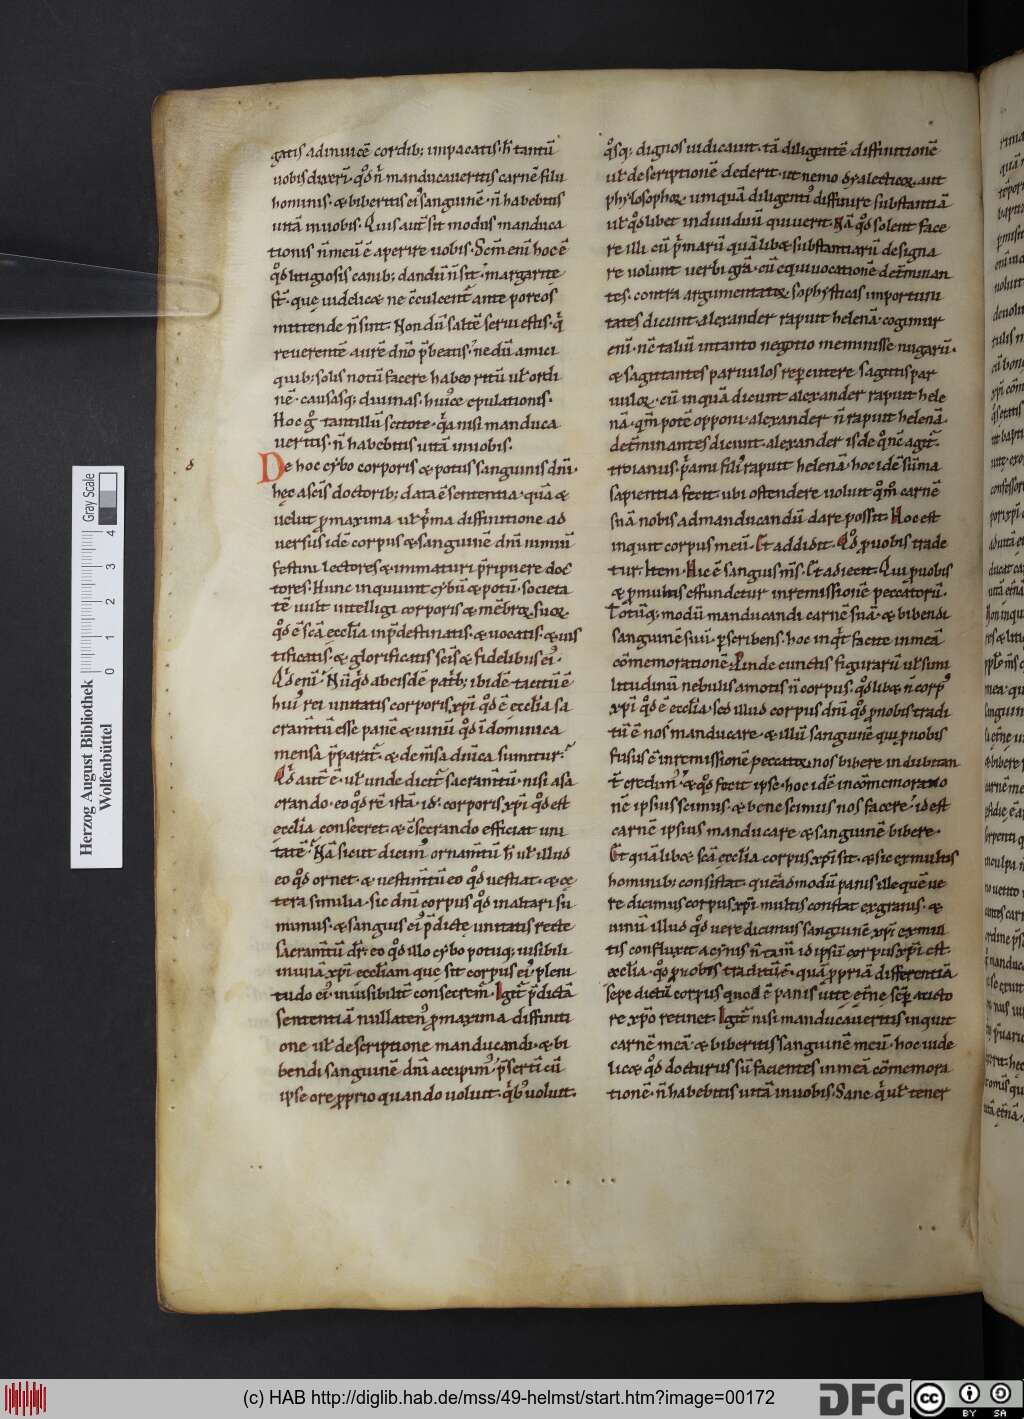 gatis adinuicē cordib; impacatis. h̄ tantū
uobis dixeri. qd̄ n̄ manducaueritis carnē filii
hominis. & biberitis ei' sanguinē. n̄ habebitis
uitā in uobis. Quis aut̄ sit modus manduca
tionis n̄ meū ē aperire uobis. Scm̄ enī hoc ē
qd̄ litigiosis canib; dandū n̄ sit. margarite
st̄. que uidelicet ne c̄culcent̄ ante porcos
mittende n̄ sint. Non dū saltē serui estis. q̇
reuerentē aurē dn̄o p̄beatis. nedū amici
quib; solis notū facere habeo ritū ul̄ ordi
nē. causasq; diuinas. hui'ce epulationis.
Hoc g̊ tantillū scitote. q̇a nisi manduca
ueritis. n̄ habebitis uitā in uobis.
De hoc cybo corporis & potus sanguinis dn̄i.
hęc a scīs doctorib; data ē sententia. quā &
uelut ꝓmaxima ul̄ p̄ma diffinitione ad
uersus idē corpus & sanguinē dn̄i nimiū
festini lectores & immaturi p̄ripuere doc
tores. Hunc inquiunt cybū & potū. societa
tē uult intelligi corporis & mēbroꝝ suoꝝ.
qd̄ ē scā eccl̄ia in p̄destinatis. & uocatis. & ius
tificatis. & glorificatis scīs & fidelibus ei'.
Qd̄ enī. Nūq̇d ab eisdē patrib; ibidē tacitū ē
hui' rei unitatis corporis xp̄i qd̄ ē eccl̄ia sa
cram̄tū esse panē & uinū qd̄ ī dominica
mensa p̄parat̄. & de m̄sa dn̄ica sumitur.
Qd̄ aut̄ ē. ul̄ unde dicit̄ sacram̄tū. nisi a sa
crando. eo qd̄ rē istā. id. corporis xp̄i qd̄ est
eccl̄ia consecret. & c̄secrando efficiat uni
tatē. Nā sicut dicim' ornam̄tū h̄ ul̄ illud
eo qd̄ ornet. & uestim̄tū eo qd̄ uestiat. & ce
tera similia. sic dn̄i corpus qd̄ in altari su
mimus. & sanguis ei' p̄dicte unitatis recte
sacram̄tū dr̄. eo qd̄ illo cybo potuq; uisibili
in unā xp̄i eccl̄iam que sit corpus ei' pleni
tudo ei' inuisibilit̄ consecrem̄. Igit̄ p̄dictā
sententiā nullaten' ꝓmaxima diffiniti
one ul̄ descriptione manducandi. & bi
bendi sanguinē dn̄i accipim'. p̄serti cū
ipse ore ꝓprio quando uoluit. q̇b' uoluit.
qd̄sq; dignos iudicauit. tā diligentē diffinitionē
ul̄ descriptionē dederit. ut nemo dyalecticoꝝ. aut
phylosophoꝝ. umquā diligenti' diffinire substantiā
ul̄ qd̄libet indiuiduū quiuerit. Nā qd̄ solent face
re illi cū p̄marū quālib& substantiarū designa
re uolunt uerbi gr̄a. cū equiuocationē det̄minan
tes. contra argumentatiōes sophysticas importuni
tates dicunt. alexander rapuit helenā. cogimur
enī. nc̄ taliū in tanto negotio meminisse nugarū.
& sagittantes paruulos repercutere sagittis par
uuloꝝ. cū inquā dicunt alexander rapuit hele
nā. qm̄ potē opponi. alexander n̄ rapuit helenā.
det̄minantes dicunt. alexander is de q̊ nc̄ agit̄.
troianus. p̄ami fili' rapuit helenā. hoc idē sūma
sapientia fecit. ubi ostendere uoluit qm̄ carnē
suā nobis ad manducandū dare possit. Hoc est
inquit corpus meū. Et addidit. Qd̄ ꝓ uobis trade
tur. Item. Hic ē sanguis m̄s. Et adiecit. Qui ꝓ uobis
& ꝓ multis effundetur in remissionē peccatorū.
Totūq; modū manducandi carnē suā & bibendi
sanguinē suū ꝑscribens. hoc inq̇t facite in meā
cōmemorationē. Proinde cunctis figurarū ul̄ simi
litudinū nebulis amotis n̄ corpus. qd̄lib& n̄ corp'
xp̄i qd̄ ē eccl̄ia. sed illud corpus dn̄i qd̄ ꝓ nobis tradi
tū ē nos manducare. & illū sanguinē qui ꝓ uobis
fusus ē in remissionē peccatoꝝ. nos bibere indubitan
t̄ credim'. & qd̄ fecit ipse. hoc idē in cōmemoratio
nē ipsius scimus. & bene scimus nos facere. id est
carnē ipsius manducare & sanguinē bibere.
Et quālib& scā eccl̄ia corpus xp̄i sit. & sic ex multis
hominib; consistat. quēadmodū panis ille quē ue
re dicimus corpus xp̄i multis constat ex granis. &
uinū illud qd̄ uere dicimus sanguinē xp̄i ex mul
tis confluxit acynis n̄ tam̄ id ipsū corpus xp̄i est
eccl̄ia. qd̄ ꝓ nobis traditū ē. quā ꝓpriā differentiā
sepe dictū corpus quod ē panis uite et̄ne semp̄ aucto
re xp̄o retinet. Igit̄ nisi manducaueritis inquit
carnē meā & biberitis sanguinē meū. hoc uide
licet qd̄ docturus sū facientes in meā cōmemora
tionē. n̄ habebitis uitā in uobis. Sane q̇ ul̄ tener
Gray Scale
0 1 2 3 4
Herzog August Bibliothek
Wolfenbüttel
(c) HAB http://diglib.hab.de/mss/49-helmst/start.htm?image=00172
DFG
cc BY SA